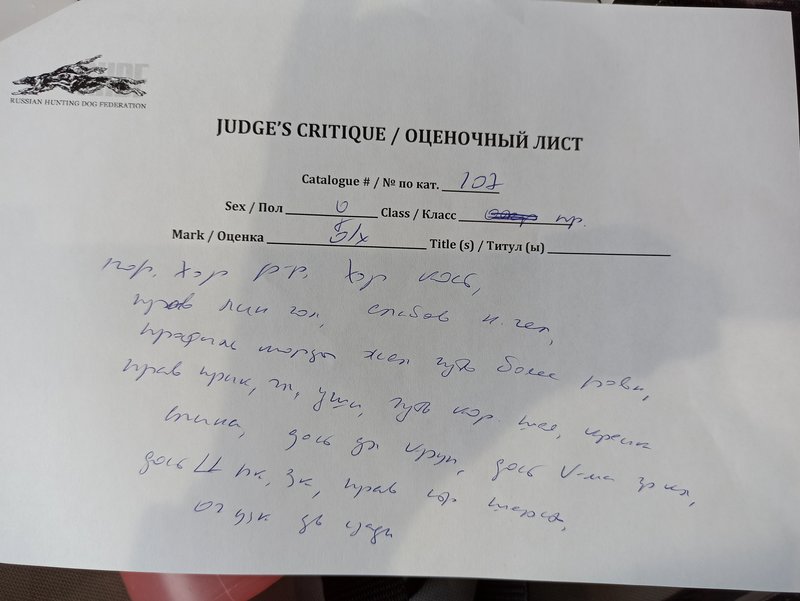 RUSSIAN HUNTING DOG FEDERATION
JUDGE'S CRITIQUE / ОЦЕНОЧНЫЙ ЛИСТ
Catalogue # / № по кат. 107
Sex / Пол Class / Класс пр.
Mark / Оценка Title (s) / Титул (ы)
пор. хор рт. хор кость,
прав лин гол, слабов н. чел,
профиль морды жел чуть более ровн,
прав прик, гл, уши, чуть кор. шея, крепк
спина, дост дл круп, дост гр кл,
дост пк, зк, прав шерсть,
оч узк дв сзади